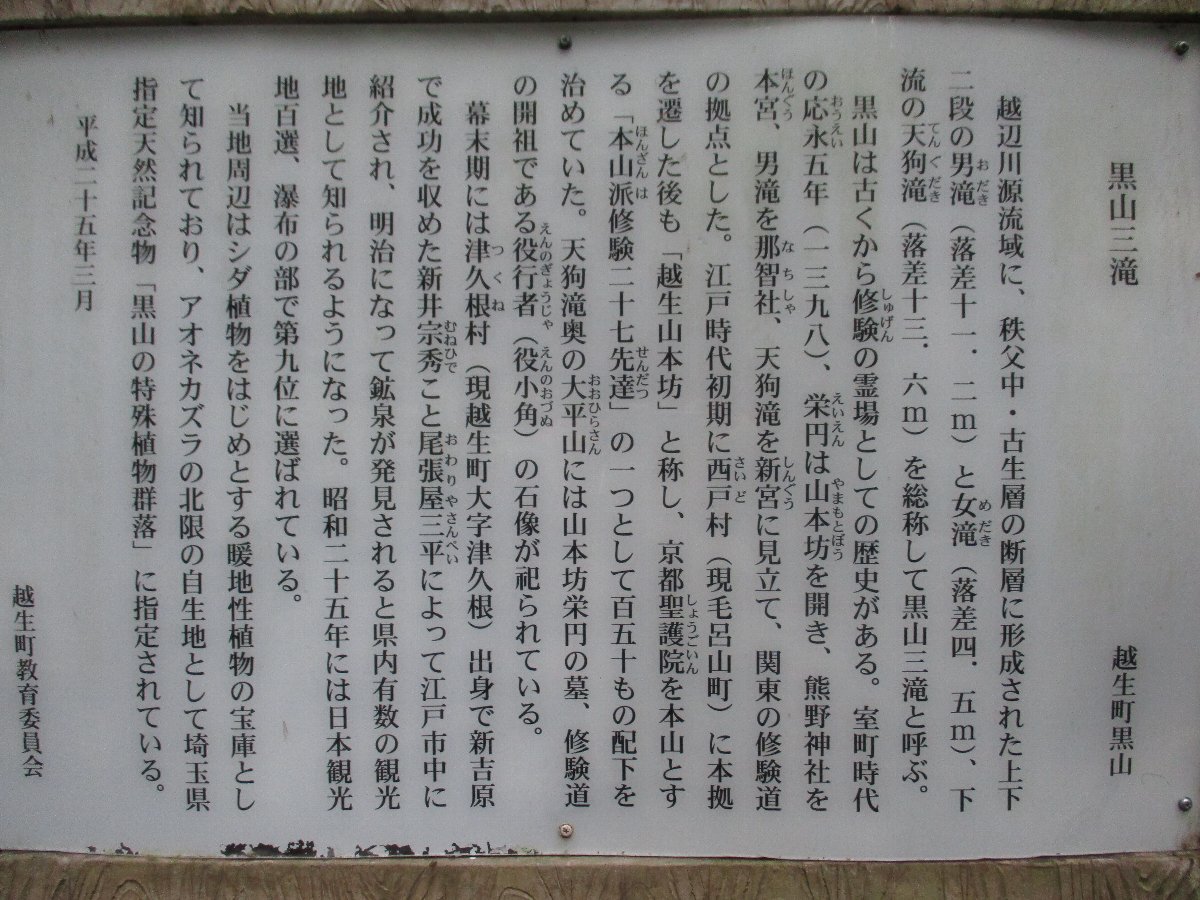 黒山三滝
越生町黒山
越辺川源流域に、秩父中・古生層の断層に形成された上下
二段の男滝（落差十一．二ｍ）と女滝（落差四．五ｍ）、下
流の天狗滝（落差十三．六ｍ）を総称して黒山三滝と呼ぶ。
黒山は古くから修験の霊場としての歴史がある。室町時代
の応永五年（一三九八）、栄円は山本坊を開き、熊野神社を
本宮、男滝を那智社、天狗滝を新宮に見立て、関東の修験道
の拠点とした。江戸時代初期に西戸村（現毛呂山町）に本拠
を遷した後も「越生山本坊」と称し、京都聖護院を本山とす
る「本山派修験二十七先達」の一つとして百五十もの配下を
治めていた。天狗滝奥の大平山には山本坊栄円の墓、修験道
の開祖である役行者（役小角）の石像が祀られている。
幕末期には津久根村（現越生町大字津久根）出身で新吉原
で成功を収めた新井宗秀こと尾張屋三平によって江戸市中に
紹介され、明治になって鉱泉が発見されると県内有数の観光
地として知られるようになった。昭和二十五年には日本観光
地百選、瀑布の部で第九位に選ばれている。
当地周辺はシダ植物をはじめとする暖地性植物の宝庫とし
て知られており、アオネカズラの北限の自生地として埼玉県
指定天然記念物「黒山の特殊植物群落」に指定されている。
平成二十五年三月
越生町教育委員会